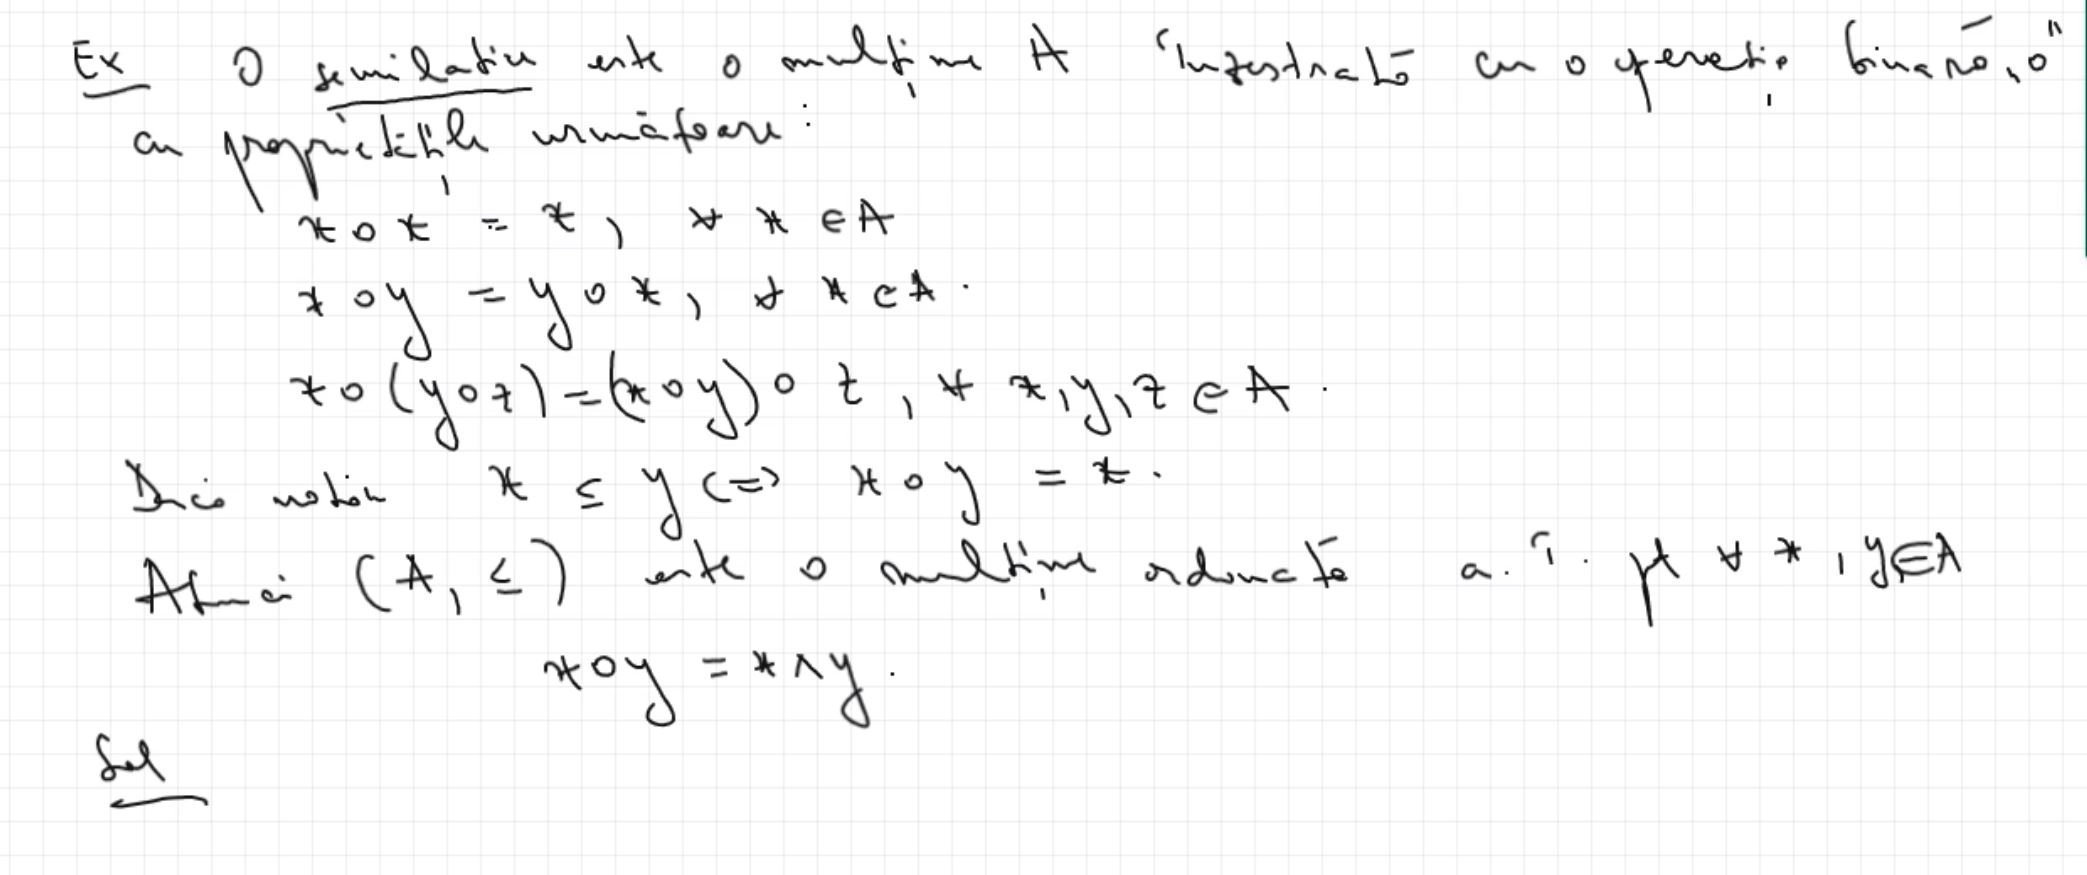 Ex O semilatice este o mulțime A înzestrată cu o operație binară „∘”
cu proprietățile următoare:
x ∘ x = x, ∀ x ∈ A
x ∘ y = y ∘ x, ∀ x ∈ A.
x ∘ (y ∘ z) = (x ∘ y) ∘ z, ∀ x, y, z ∈ A.
Dacă notăm x ≤ y <=> x ∘ y = x.
Atunci (A, ≤) este o mulțime ordonată a.î. pt ∀ x, y ∈ A
x ∘ y = x ∧ y.
Sol